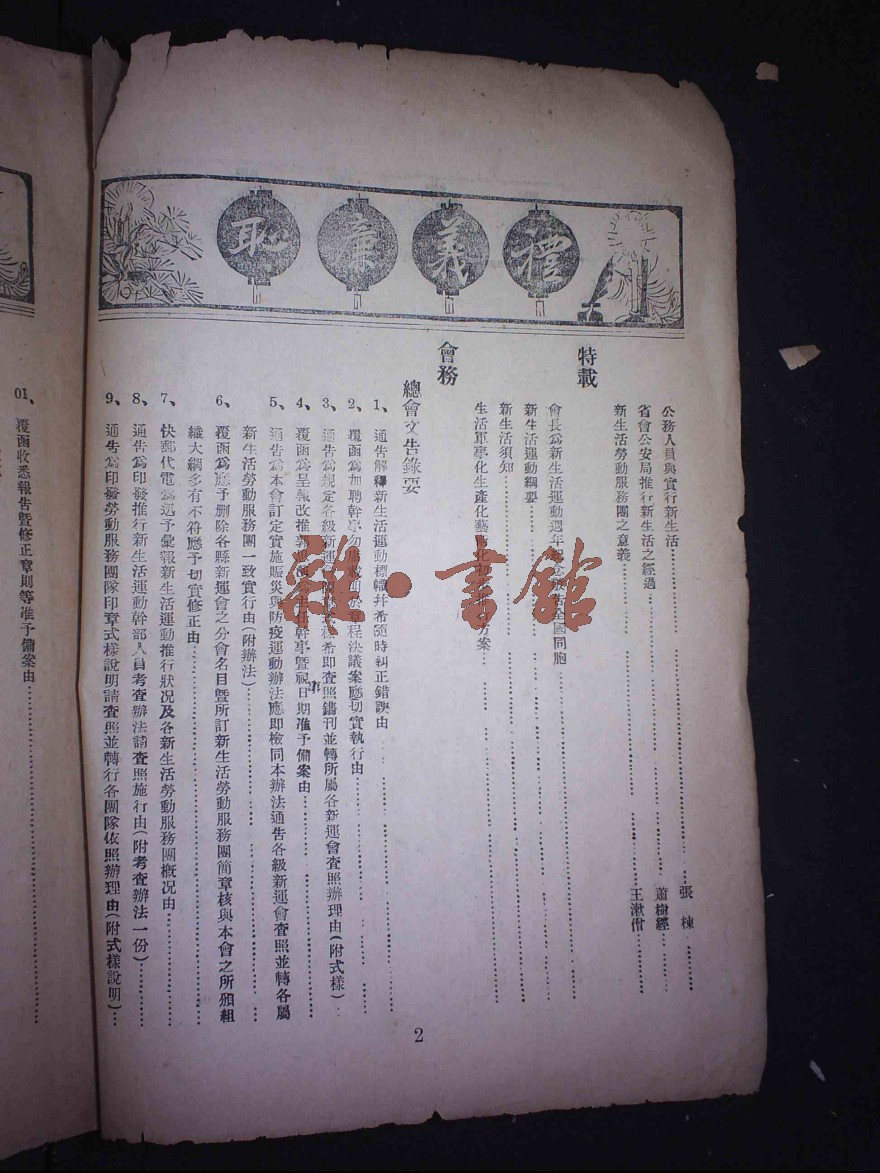 禮義廉恥
公務人員與實行新生活 張棟
省會公安局推行新生活之經過 蕭樹經
新生活勞動服務團之意義 王漱僧
特載
會長為新生活運動週年紀念 告全國同胞
新生活運動綱要
新生活須知
生活軍事化生產化藝術化初步 方案
會務
總會文告錄要
1、通告解釋新生活運動標幟并希隨時糾正錯誤由
2、覆函為加聘幹事 章程決議案應切實執行由
3、通告為規定各級新運 希即查照鐫刊並轉所屬各新運會查照辦理由(附式樣)
4、覆函為呈報改推 幹事暨視事日期准予備案由
5、通告為本會訂定實施賑災與防疫運動辦法應即檢同本辦法通告各級新運會查照並轉各屬
新生活勞動服務團一致實行由(附辦法)
6、覆函為應予刪除各縣新運會之分會名目暨所訂新生活勞動服務團簡章核與本會之所頒組
織大綱多有不符應予切實修正由
7、快郵代電為迅予彙報新生活運動推行狀況及各新生活勞動服務團概況由
8、通告為印發推行新生活運動幹部人員考查辦法請查照施行由(附考查辦法一份)
9、通告為印發勞動服務團隊印章式樣說明請查照並轉行各團隊依照辦理由(附式樣說明)
2
01、覆函收悉報告暨修正章則等准予備案由
雜·書館